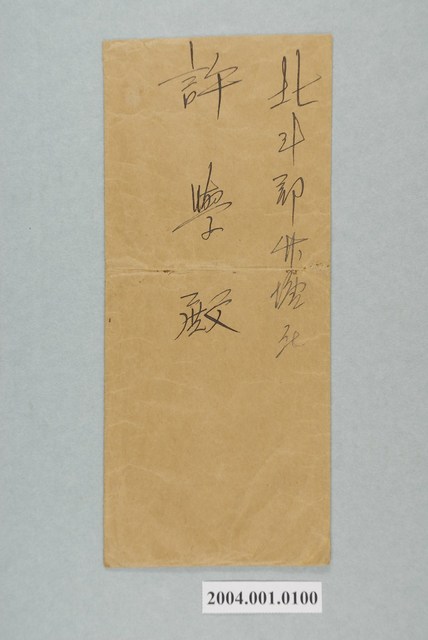 北斗郡竹塘庄
許學殿
2004.001.0100